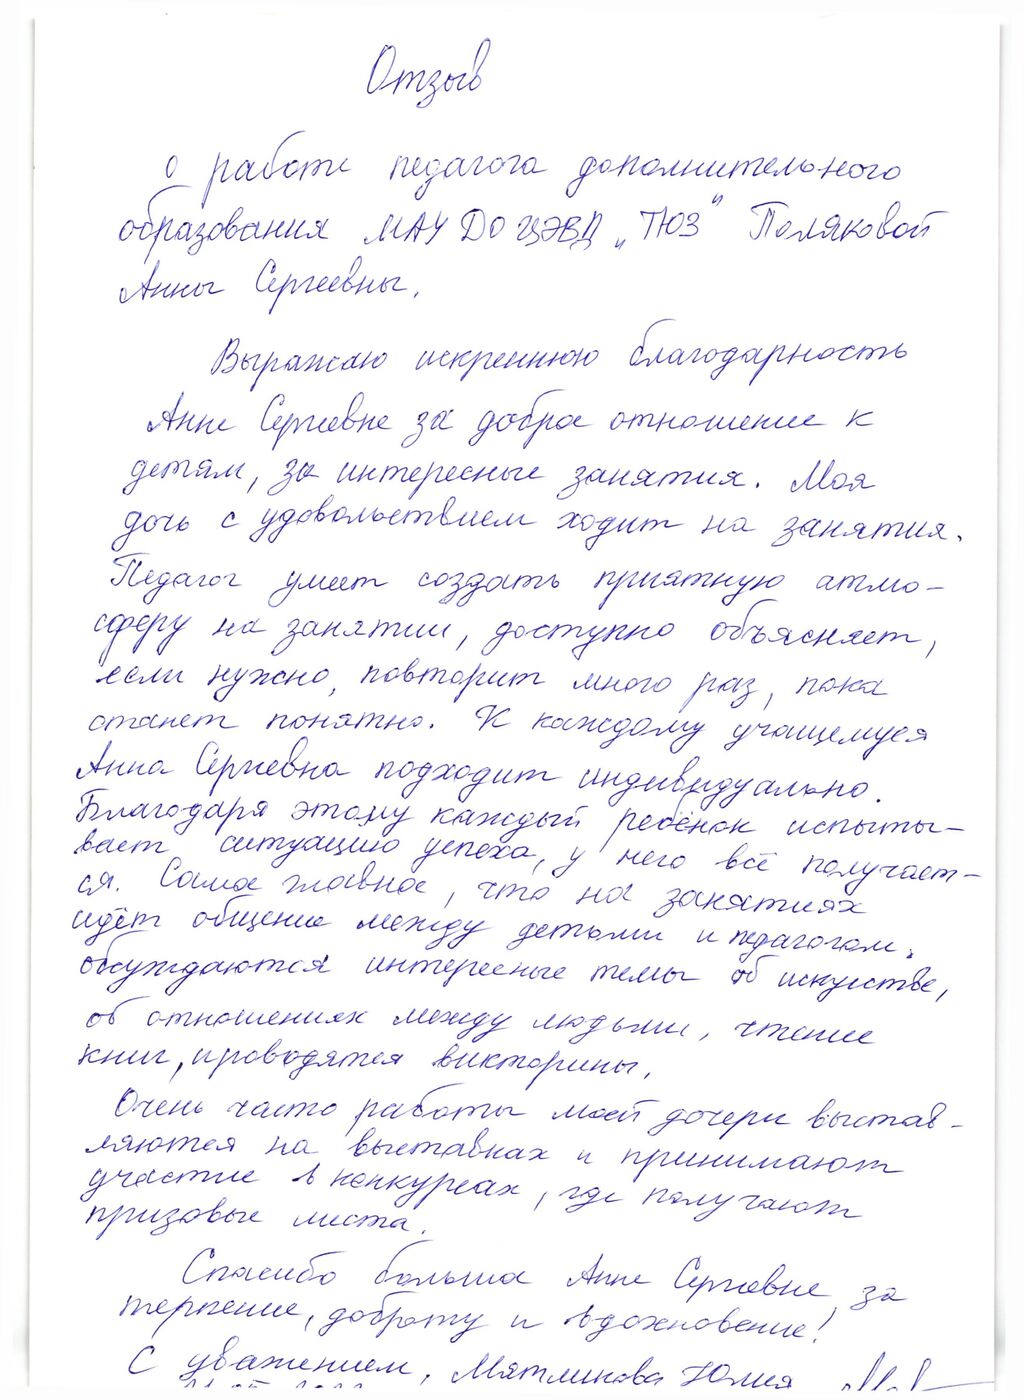 Отзыв
о работе педагога дополнительного
образования МАУ ДО ЦЭВД „ТЮЗ" Поляковой
Анны Сергеевны.
Выражаю искреннюю благодарность
Анне Сергеевне за доброе отношение к
детям, за интересные занятия. Моя
дочь с удовольствием ходит на занятия.
Педагог умеет создать приятную атмо-
сферу на занятии, доступно объясняет,
если нужно, повторит много раз, пока
станет понятно. К каждому учащемуся
Анна Сергеевна подходит индивидуально.
Благодаря этому каждый ребёнок испыты-
вает ситуацию успеха, у него всё получает-
ся. Самое главное, что на занятиях
идёт общение между детьми и педагогом.
обсуждаются интересные темы об искусстве,
об отношениях между людьми, чтение
книг, проводятся викторины.
Очень часто работы моей дочери выстав-
ляются на выставках и принимают
участие в конкурсах, где получают
призовые места.
Спасибо большое Анне Сергеевне за
терпение, доброту и вдохновение!
С уважением, Мятликова Юлия